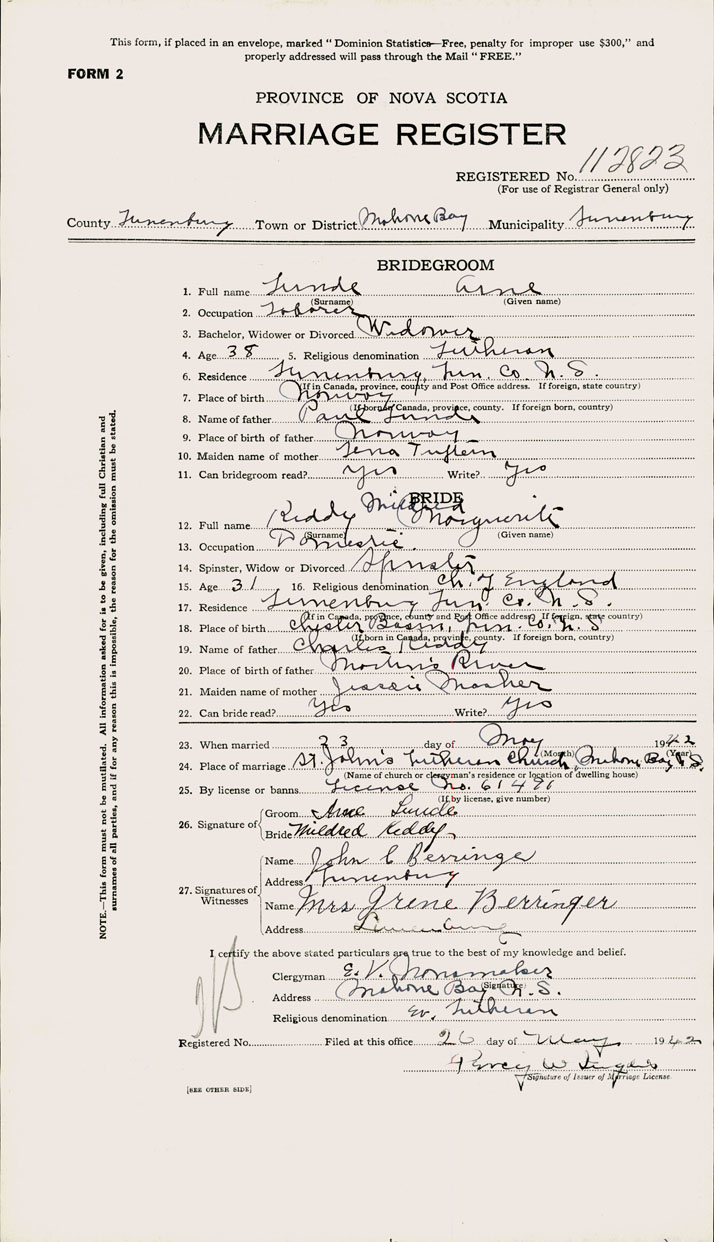 This form, if placed in an envelope, marked "Dominion Statistics—Free, penalty for improper use $300," and
properly addressed will pass through the Mail "FREE."
FORM 2
PROVINCE OF NOVA SCOTIA
MARRIAGE REGISTER
REGISTERED No. 112823
(For use of Registrar General only)
County Lunenburg Town or District Mahone Bay Municipality Lunenburg
BRIDEGROOM
1. Full name Lunde Arne
(Surname) (Given name)
2. Occupation Laborer
3. Bachelor, Widower or Divorced Widower
4. Age 38 5. Religious denomination Lutheran
6. Residence Lunenburg, Lun. Co. N. S.
(If in Canada, province, county and Post Office address. If foreign, state country)
7. Place of birth Norway
(If born in Canada, province, county. If foreign born, country)
8. Name of father Paul Lunde
9. Place of birth of father Norway
10. Maiden name of mother Lena
11. Can bridegroom read? Yes Write? Yes
BRIDE
12. Full name Keddy Mildred Marguerite
(Surname) (Given name)
13. Occupation Domestic
14. Spinster, Widow or Divorced Spinster
15. Age 31 16. Religious denomination Ch. of England
17. Residence Lunenburg Lun. Co. N. S.
(If in Canada, province, county and Post Office address. If foreign, state country)
18. Place of birth Chester Basin, Lun. Co. N. S.
(If born in Canada, province, county. If foreign born, country)
19. Name of father Charles Keddy
20. Place of birth of father Martin's River
21. Maiden name of mother Jessie Mosher
22. Can bride read? Yes Write? Yes
23. When married 23 day of May 1942
(Month) (Year)
24. Place of marriage St. John's Lutheran Church, Mahone Bay, N. S.
(Name of church or clergyman's residence or location of dwelling house)
25. By license or banns License No. 61491
(If by license, give number)
26. Signature of Groom Arne Lunde
Bride Mildred Keddy
27. Signatures of Witnesses
Name John C Berringer
Address Lunenburg
Name Mrs Irene Berringer
Address Lunenburg
I certify the above stated particulars are true to the best of my knowledge and belief.
Clergyman E. V. Nonamaker
(Signature)
Address Mahone Bay N. S.
Religious denomination Ev. Lutheran
Registered No. Filed at this office 26 day of May 1942
Percy W
Signature of Issuer of Marriage License
[SEE OTHER SIDE]
NOTE.—This form must not be mutilated. All information asked for is to be given, including full Christian and
surnames of all parties, and if for any reason this is impossible, the reason for the omission must be stated.